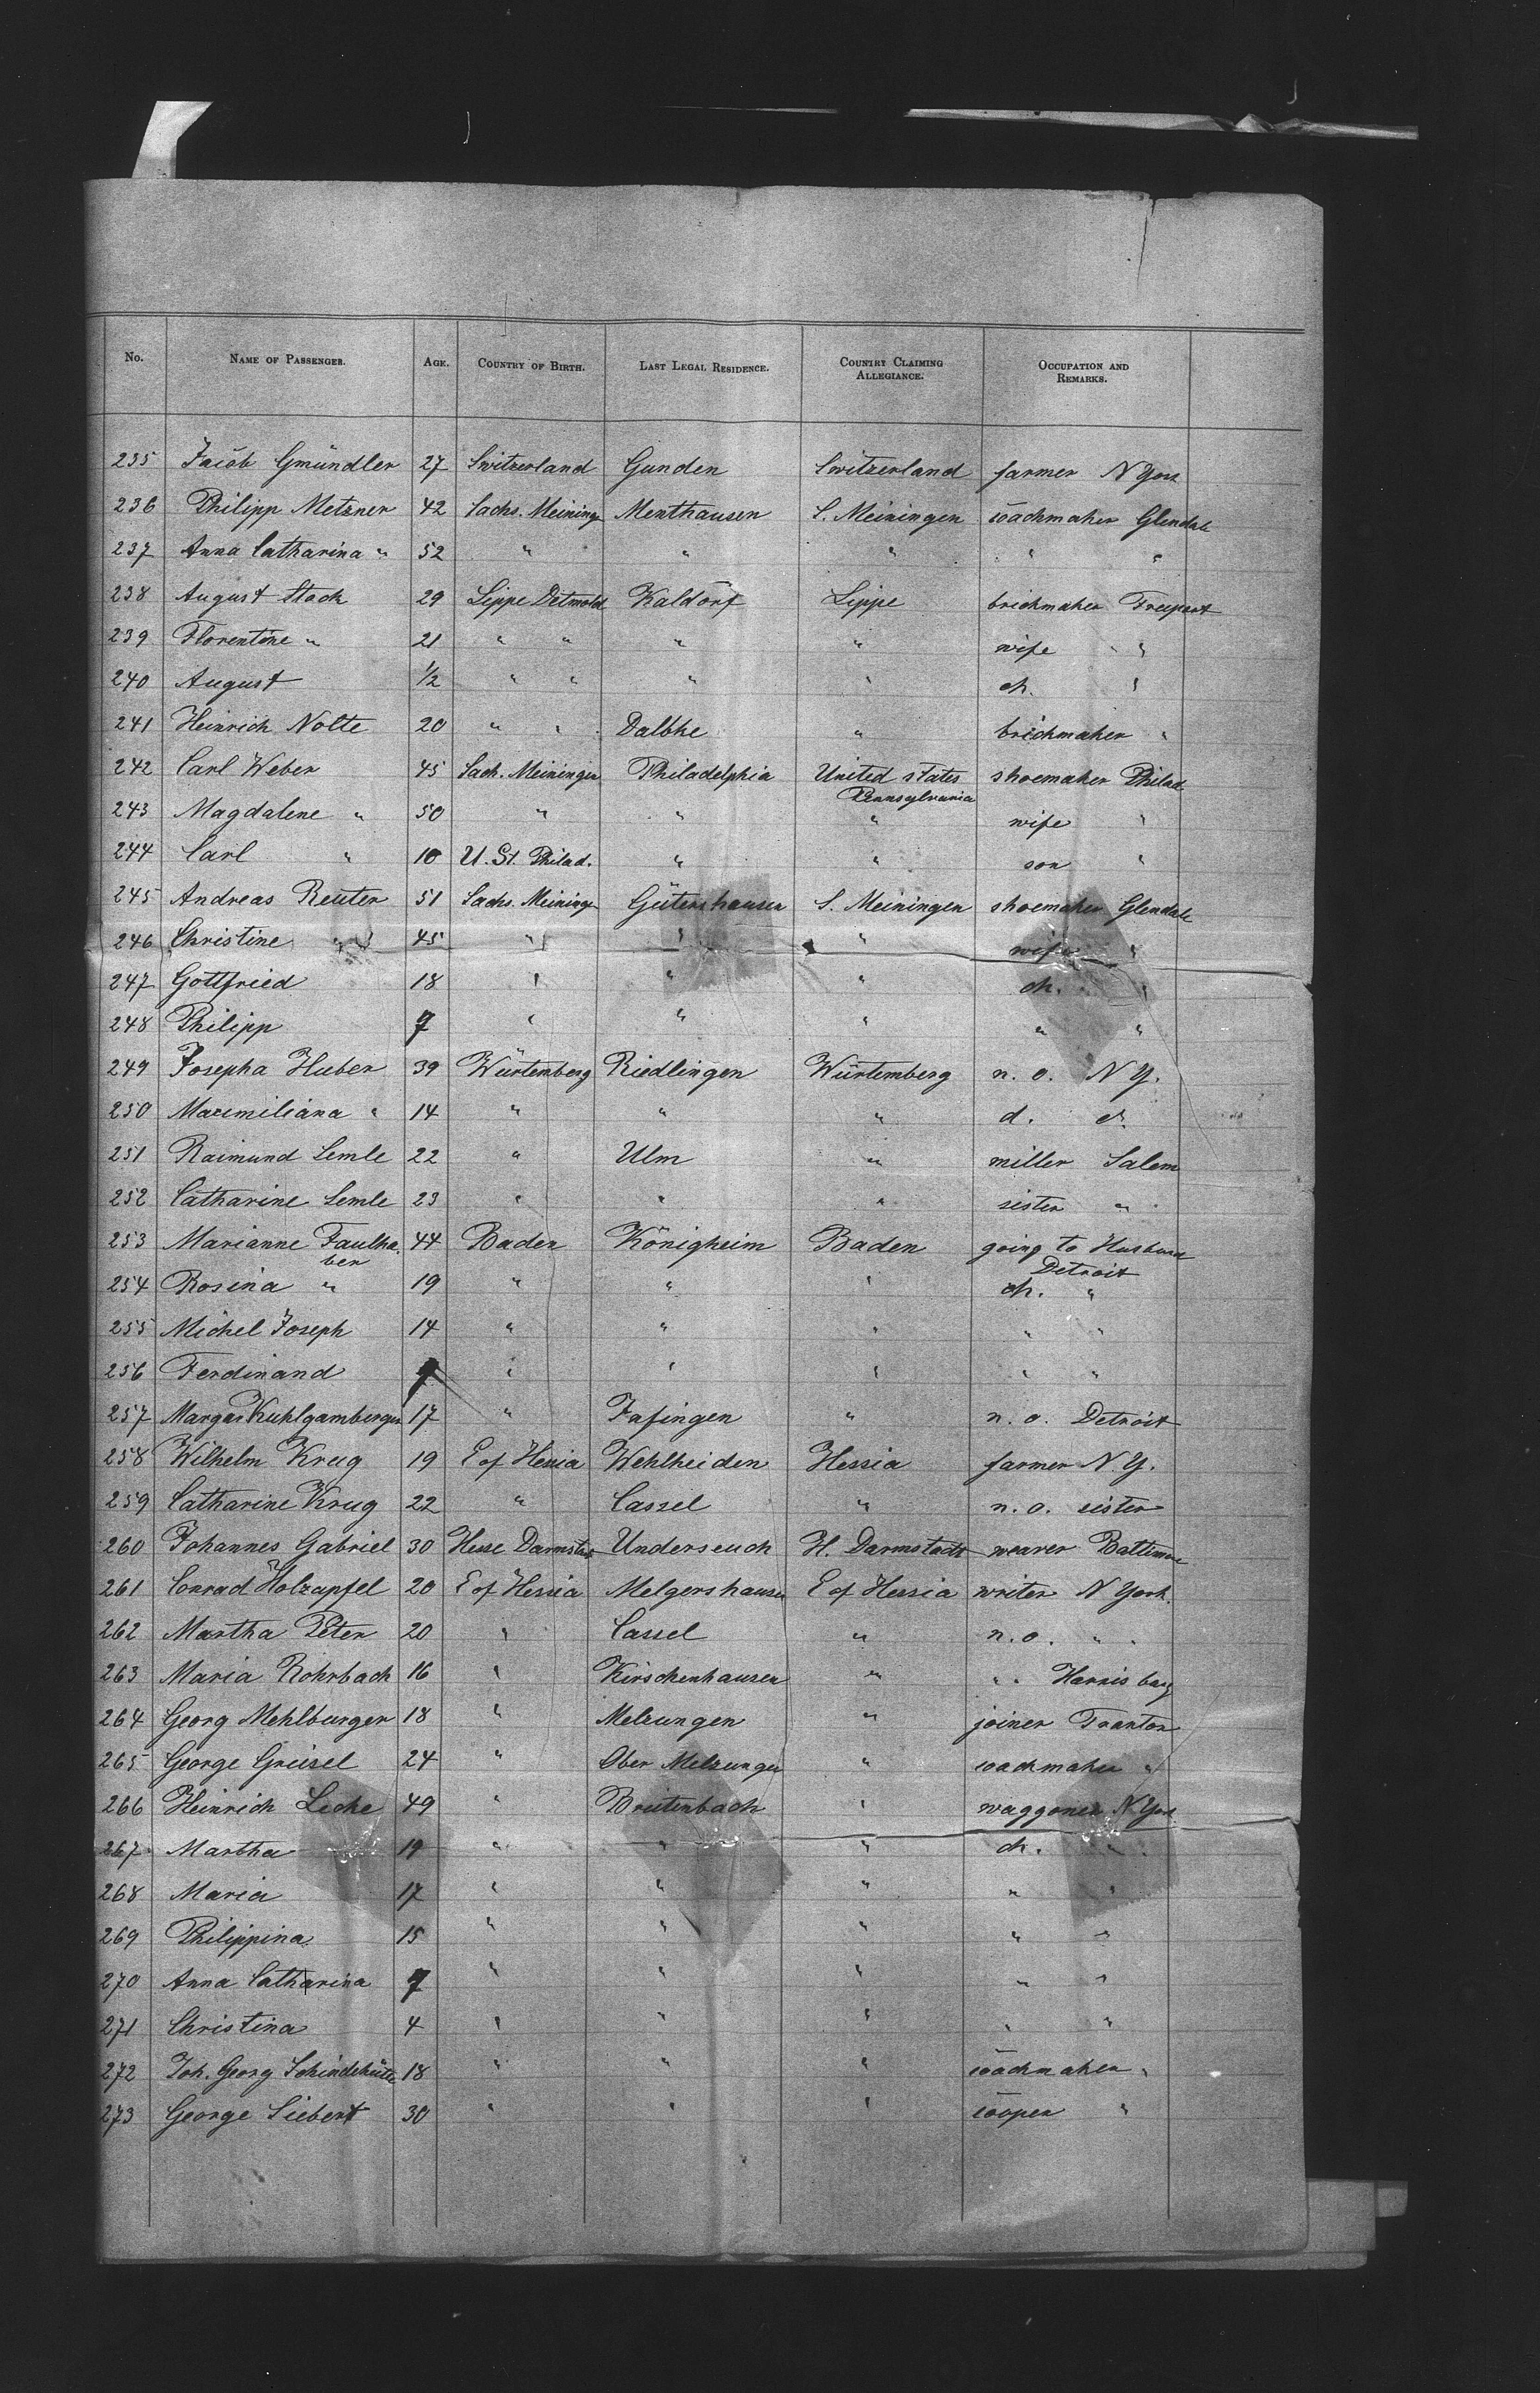 No. NAME OF PASSENGER. AGE. COUNTRY OF BIRTH. LAST LEGAL RESIDENCE. COUNTRY CLAIMING ALLEGIANCE. OCCUPATION AND REMARKS.
235 Jacob Gmündler 27 Switzerland Gunden Switzerland farmer N York
236 Philipp Metzner 42 Sachs. Meininge Menthausen S. Meiningen coachmaker Glendale
237 Anna Catharina " 52 " " " " "
238 August Stock 29 Lippe Detmold Kaldorf Lippe brickmaker Freeport
239 Florentine " 21 " " " " wife " "
240 August ½ " " " " ch. "
241 Heinrich Nolte 20 " " Dalbke " brickmaker "
242 Carl Weber 45 Sach. Meiningen Philadelphia United states Pennsylvania shoemaker Philad.
243 Magdalene " 50 " " " wife "
244 Carl " 10 U. St. Philad. " " son "
245 Andreas Reuter 51 Sachs. Meininge Gütershausen S. Meiningen shoemaker Glendale
246 Christine " 45 " " " wife "
247 Gottfried 18 " " " ch. "
248 Philipp 7 " " " " "
249 Josepha Huber 39 Würtemberg Riedlingen Würtemberg n. o. N Y.
250 Maximiliana " 14 " " " d. d.
251 Raimund Lemle 22 " Ulm " miller Salem
252 Catharine Lemle 23 " " " sister "
253 Marianne Faulhaber 44 Baden Königheim Baden going to Husband Detroit
254 Rosina " 19 " " " ch. "
255 Michel Joseph 14 " " " " "
256 Ferdinand 7 " " " " "
257 Margar Kuhlgamberger 17 " Fafingen " n. o. Detroit
258 Wilhelm Krug 19 E of Hessia Wehlheiden Hessia farmer N Y.
259 Catharine Krug 22 " Cassel " n. o. sister
260 Johannes Gabriel 30 Hesse Darmstad Underseuch H. Darmstadt weaver Baltimore
261 Conrad Holzapfel 20 E of Hessia Melgershausen E of Hessia writer N York.
262 Martha Peter 20 " Cassel " n. o. "
263 Maria Rohrbach 16 " Kirschenhausen " " " Harrisburg
264 Georg Mehlburger 18 " Melsungen " joiner Tranton
265 George Greisel 24 " Ober Melsungen " coachmaker "
266 Heinrich Leche 49 " Breitenbach " waggoner N York
267 Martha 19 " " " ch. "
268 Maria 17 " " " " "
269 Philippina 15 " " " " "
270 Anna Catharina 7 " " " " "
271 Christina 4 " " " " "
272 Joh. Georg Schindehütte 18 " " " coachmaker "
273 George Siebert 30 " " " cooper "